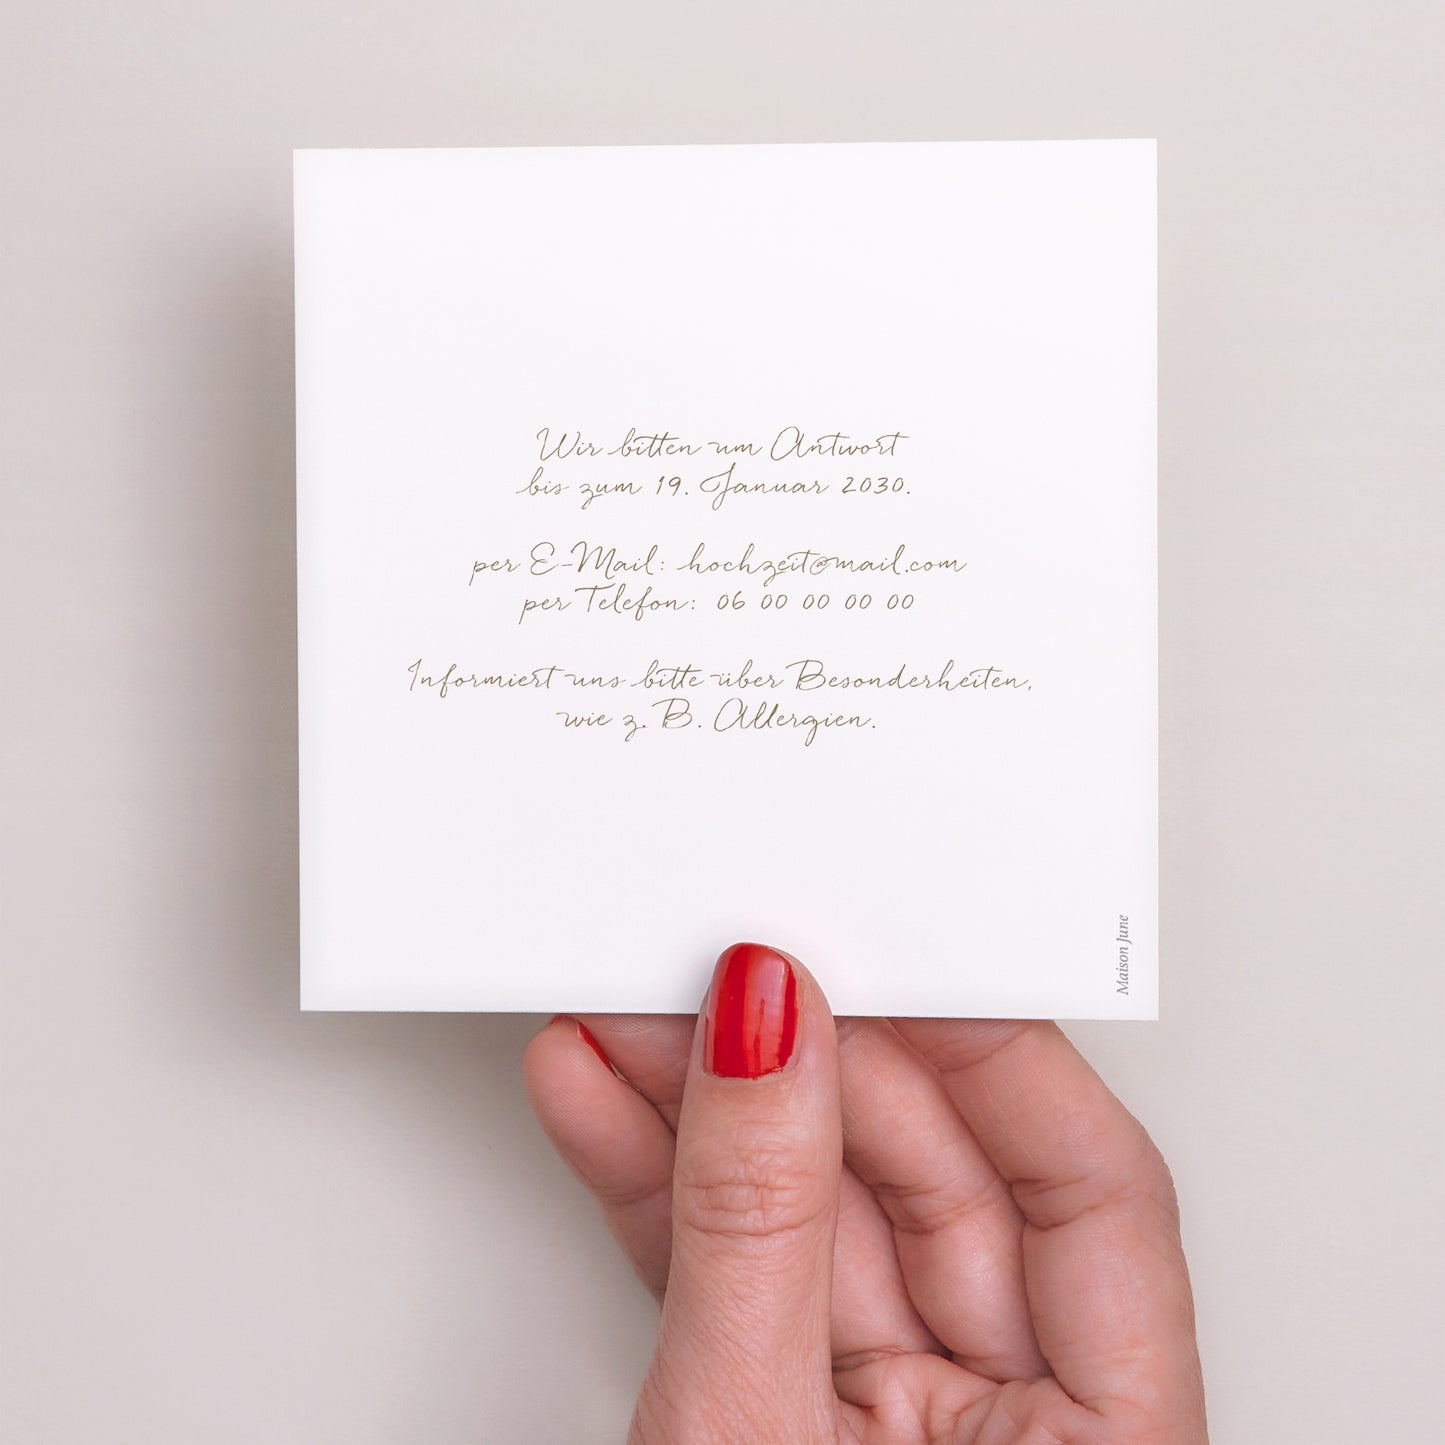 Wir bitten um Antwort
bis zum 19. Januar 2030.
per E-Mail: hochzeit@mail.com
per Telefon: 06 00 00 00 00
Informiert uns bitte über Besonderheiten,
wie z. B. Allergien.
Maison June